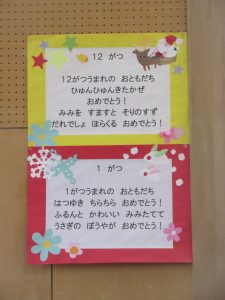 12 がつ
12がつうまれの おともだち
ひゅんひゅんきたかぜ
おめでとう！
みみを すますと そりのすず
だれでしょ ほらくる おめでとう！
1 がつ
1がつうまれの おともだち
はつゆき ちらちら おめでとう！
ふるんと かわいい みみたてて
うさぎの ぼうやが おめでとう！